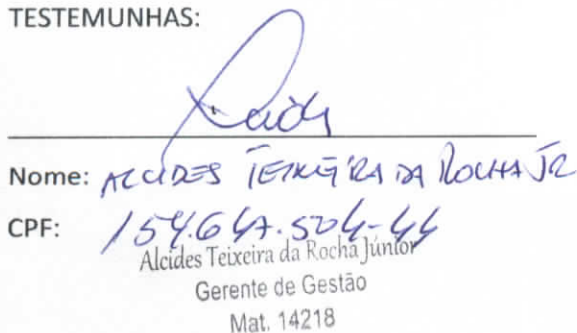 TESTEMUNHAS:
Nome: ALCIDES TEIXEIRA DA ROCHA JR
CPF: 154.647.504-44
Alcides Teixeira da Rocha Júnior
Gerente de Gestão
Mat. 14218